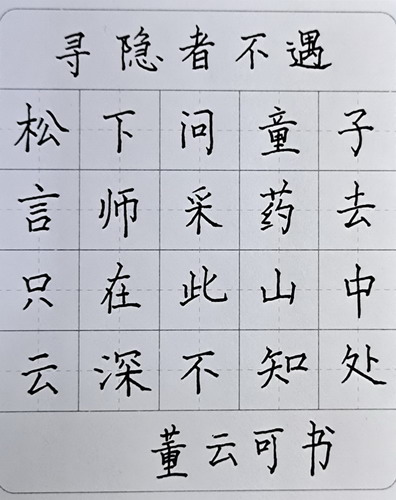 寻隐者不遇
松下问童子
言师采药去
只在此山中
云深不知处
董云可书